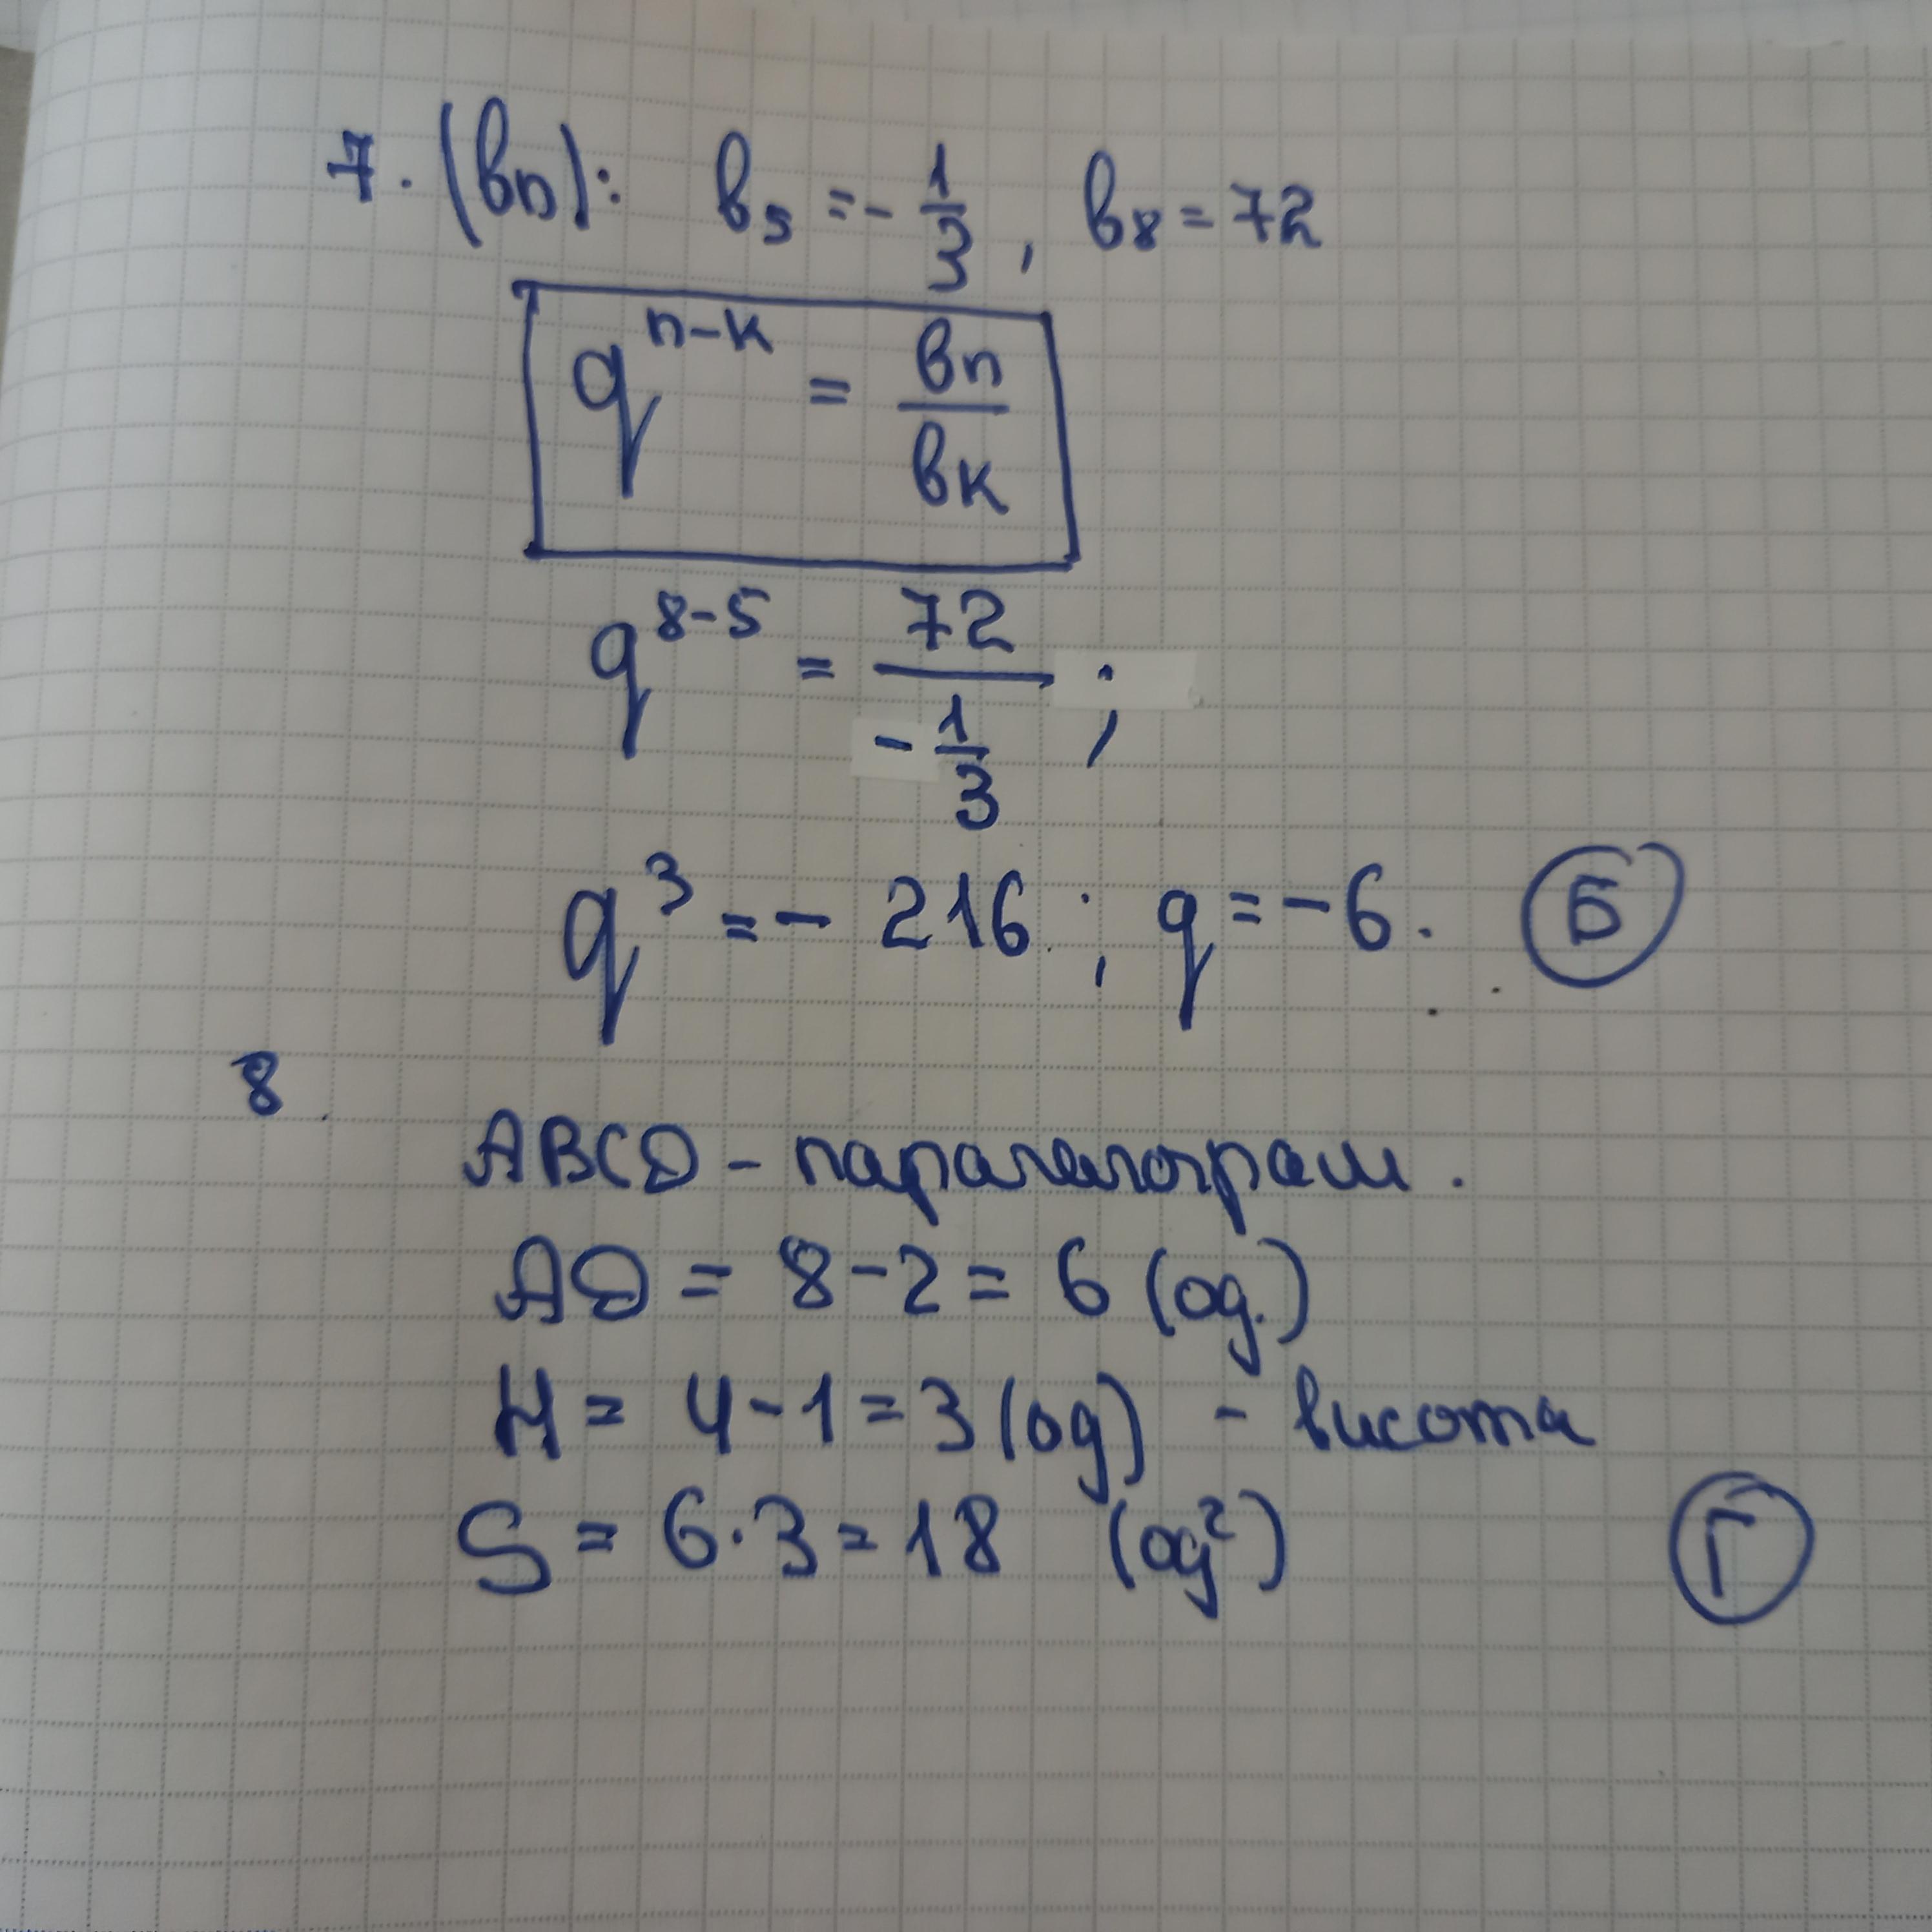 7. (bn): b5 = - 1/3 , b8 = 72
q^(n-k) = bn/bk
q^(8-5) = 72/(- 1/3) ;
q^3 = - 216 ; q = -6. Б
8.
ABCD - паралелограм.
AD = 8 - 2 = 6 (од.)
H = 4 - 1 = 3 (од) - висота
S = 6 · 3 = 18 (од²) Г